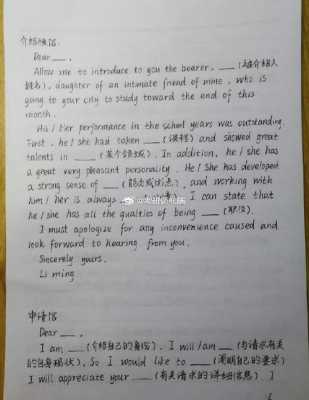 介绍信馆:
Dear ___,
Allow me to introduce to you the bearer, ___ (被介绍人
姓名), daughter of an intimate friend of mine, who is
going to your city to study toward the end of this
month.
His / Her performance in the school years was outstanding.
First, he / she had taken ___ (课程) and showed great
talents in ___ (某个领域). In addition, he / she has
a great very pleasant personality. He / She has developed
a strong sense of ___ (), and working with
him / her is always ___ (). I can state that
he / she has all the qualties of being ___ (职位).
I must apologize for any inconvenience caused and
look forward to hearing from you.
Sincerely yours,
Li ming
申请信
Dear ___,
I am ___ (介绍自己的身份). I will / am ___ (与请求有关
的自身现状), So I would like to ___ (阐明自己的要求)
I will appreciate your ___ (有关请求的详细信息). ]